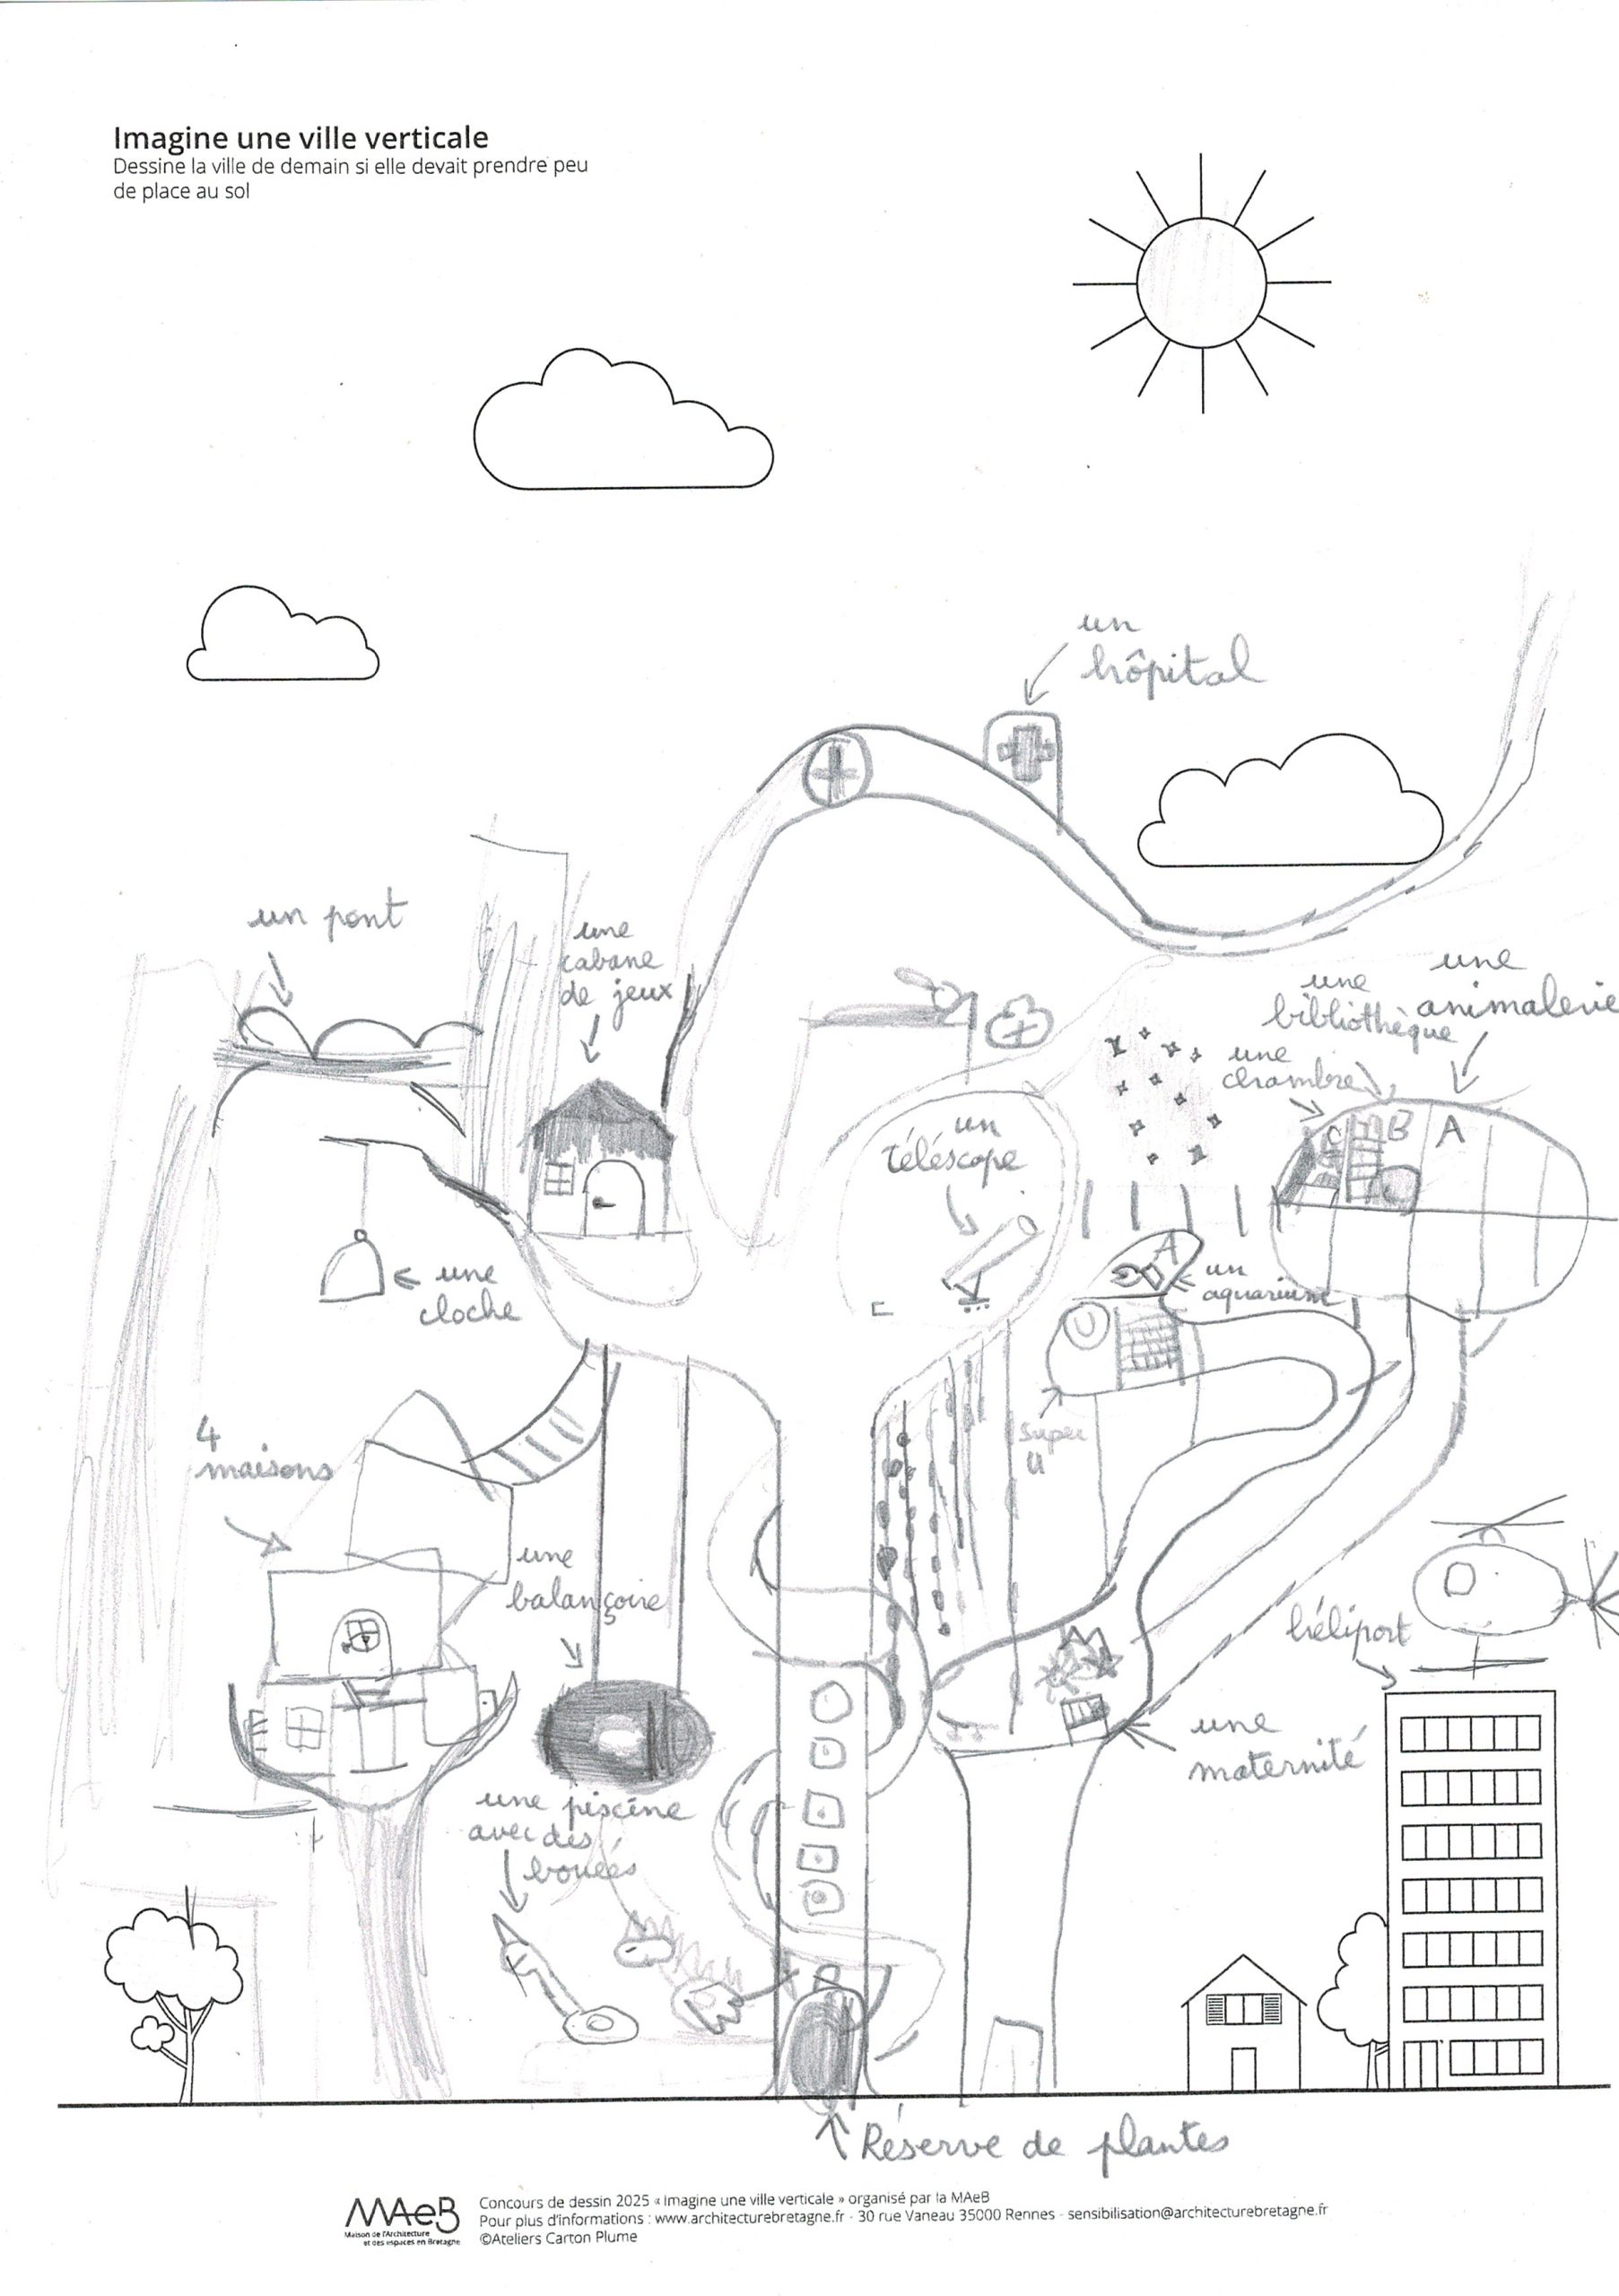 Imagine une ville verticale
Dessine la ville de demain si elle devait prendre peu
de place au sol
un
hôpital
un pont
une
cabane
de jeux
une
animalerie
une
bibliothèque
une
chambre
C
B
A
un
téléscope
une
cloche
A
un
aquarium
U
Super
U
4
maisons
une
balançoire
héliport
une
maternité
une piscine
avec des
bouées
Réserve de plantes
MAeB
Maison de l'Architecture
et des espaces en Bretagne
Concours de dessin 2025 « Imagine une ville verticale » organisé par la MAeB
Pour plus d'informations : www.architecturebretagne.fr - 30 rue Vaneau 35000 Rennes - sensibilisation@architecturebretagne.fr
©Ateliers Carton Plume